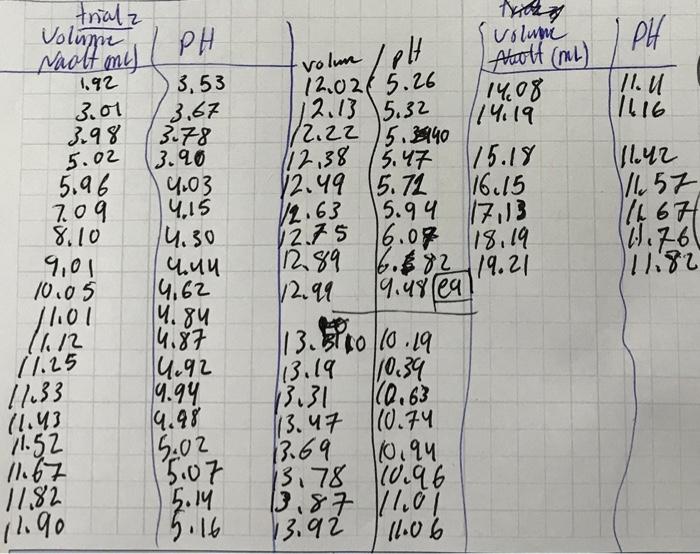 trial 2
Volume NaOH (mL) pH
1.92 3.53
3.01 3.67
3.98 3.78
5.02 3.90
5.96 4.03
7.09 4.15
8.10 4.30
9.01 4.44
10.05 4.62
11.01 4.84
11.12 4.87
11.25 4.92
11.33 4.94
11.43 4.98
11.52 5.02
11.67 5.07
11.82 5.14
11.90 5.16
volum pH
12.02 5.26
12.13 5.32
12.22 5.40
12.38 5.47
12.49 5.72
12.63 5.94
12.75 6.07
12.89 6.82
12.99 9.48 eq
13.10 10.19
13.19 10.39
13.31 10.63
13.47 10.74
13.69 10.94
13.78 10.96
13.87 11.01
13.92 11.06
trial 2
volume NaOH (mL) pH
14.08 11.11
14.19 11.16
15.18 11.42
16.15 11.57
17.13 11.67
18.19 11.76
19.21 11.82